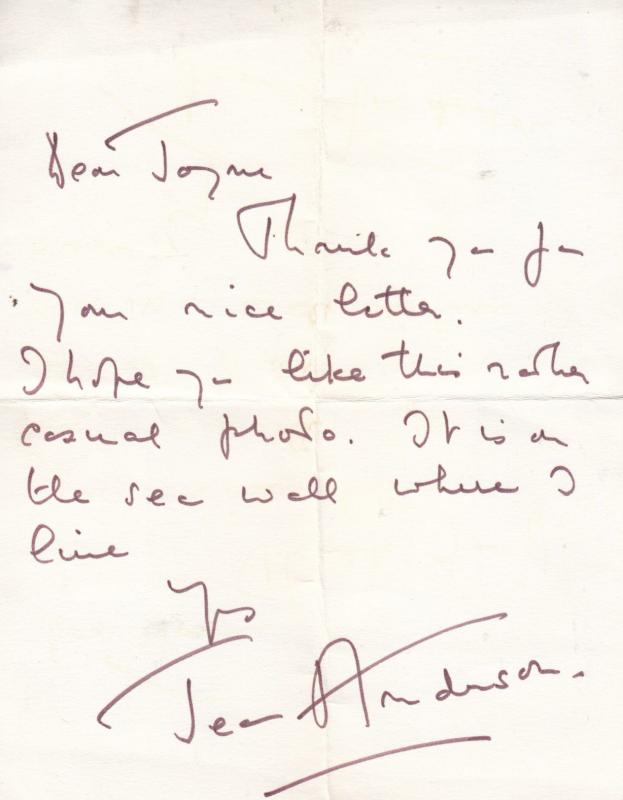 Dear Jayne
Thank you for
your nice letter.
I hope you like this rather
casual photo. It is on
the sea wall where I
live
Yrs
Jean Anderson.